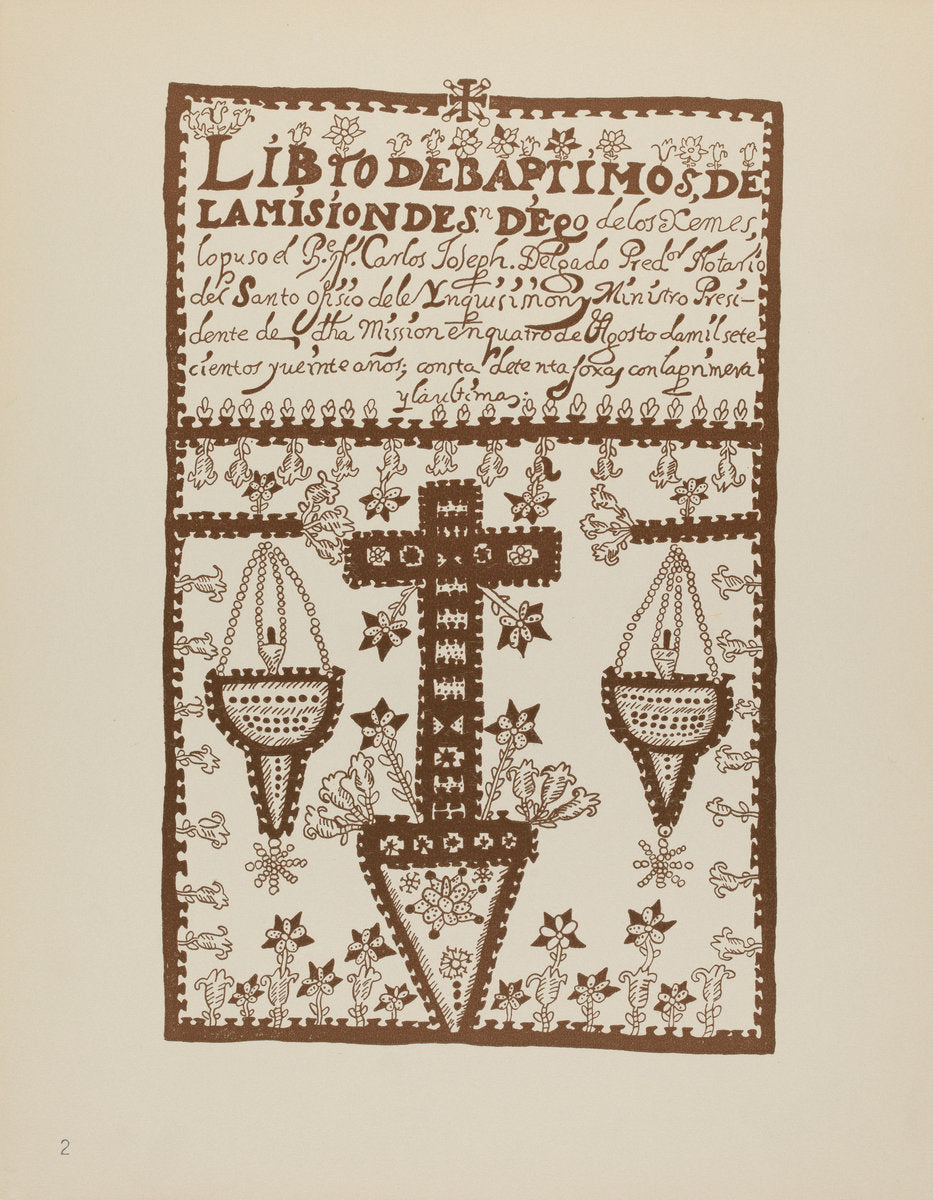 LiBro DE BAPTiMOS, DE
LA MiSiON DE Sn. DiEgo de los Xemes,
lo puso el Pe. fr. Carlos Joseph. Delgado Predor Notario
del Santo ofisio dele Ynquisision, y Ministro Presi-
dente de dtha Mission en quatro de Agosto da mil sete-
cientos y veinte años; consta detenta foxas con la primera
y la ultimas:
2